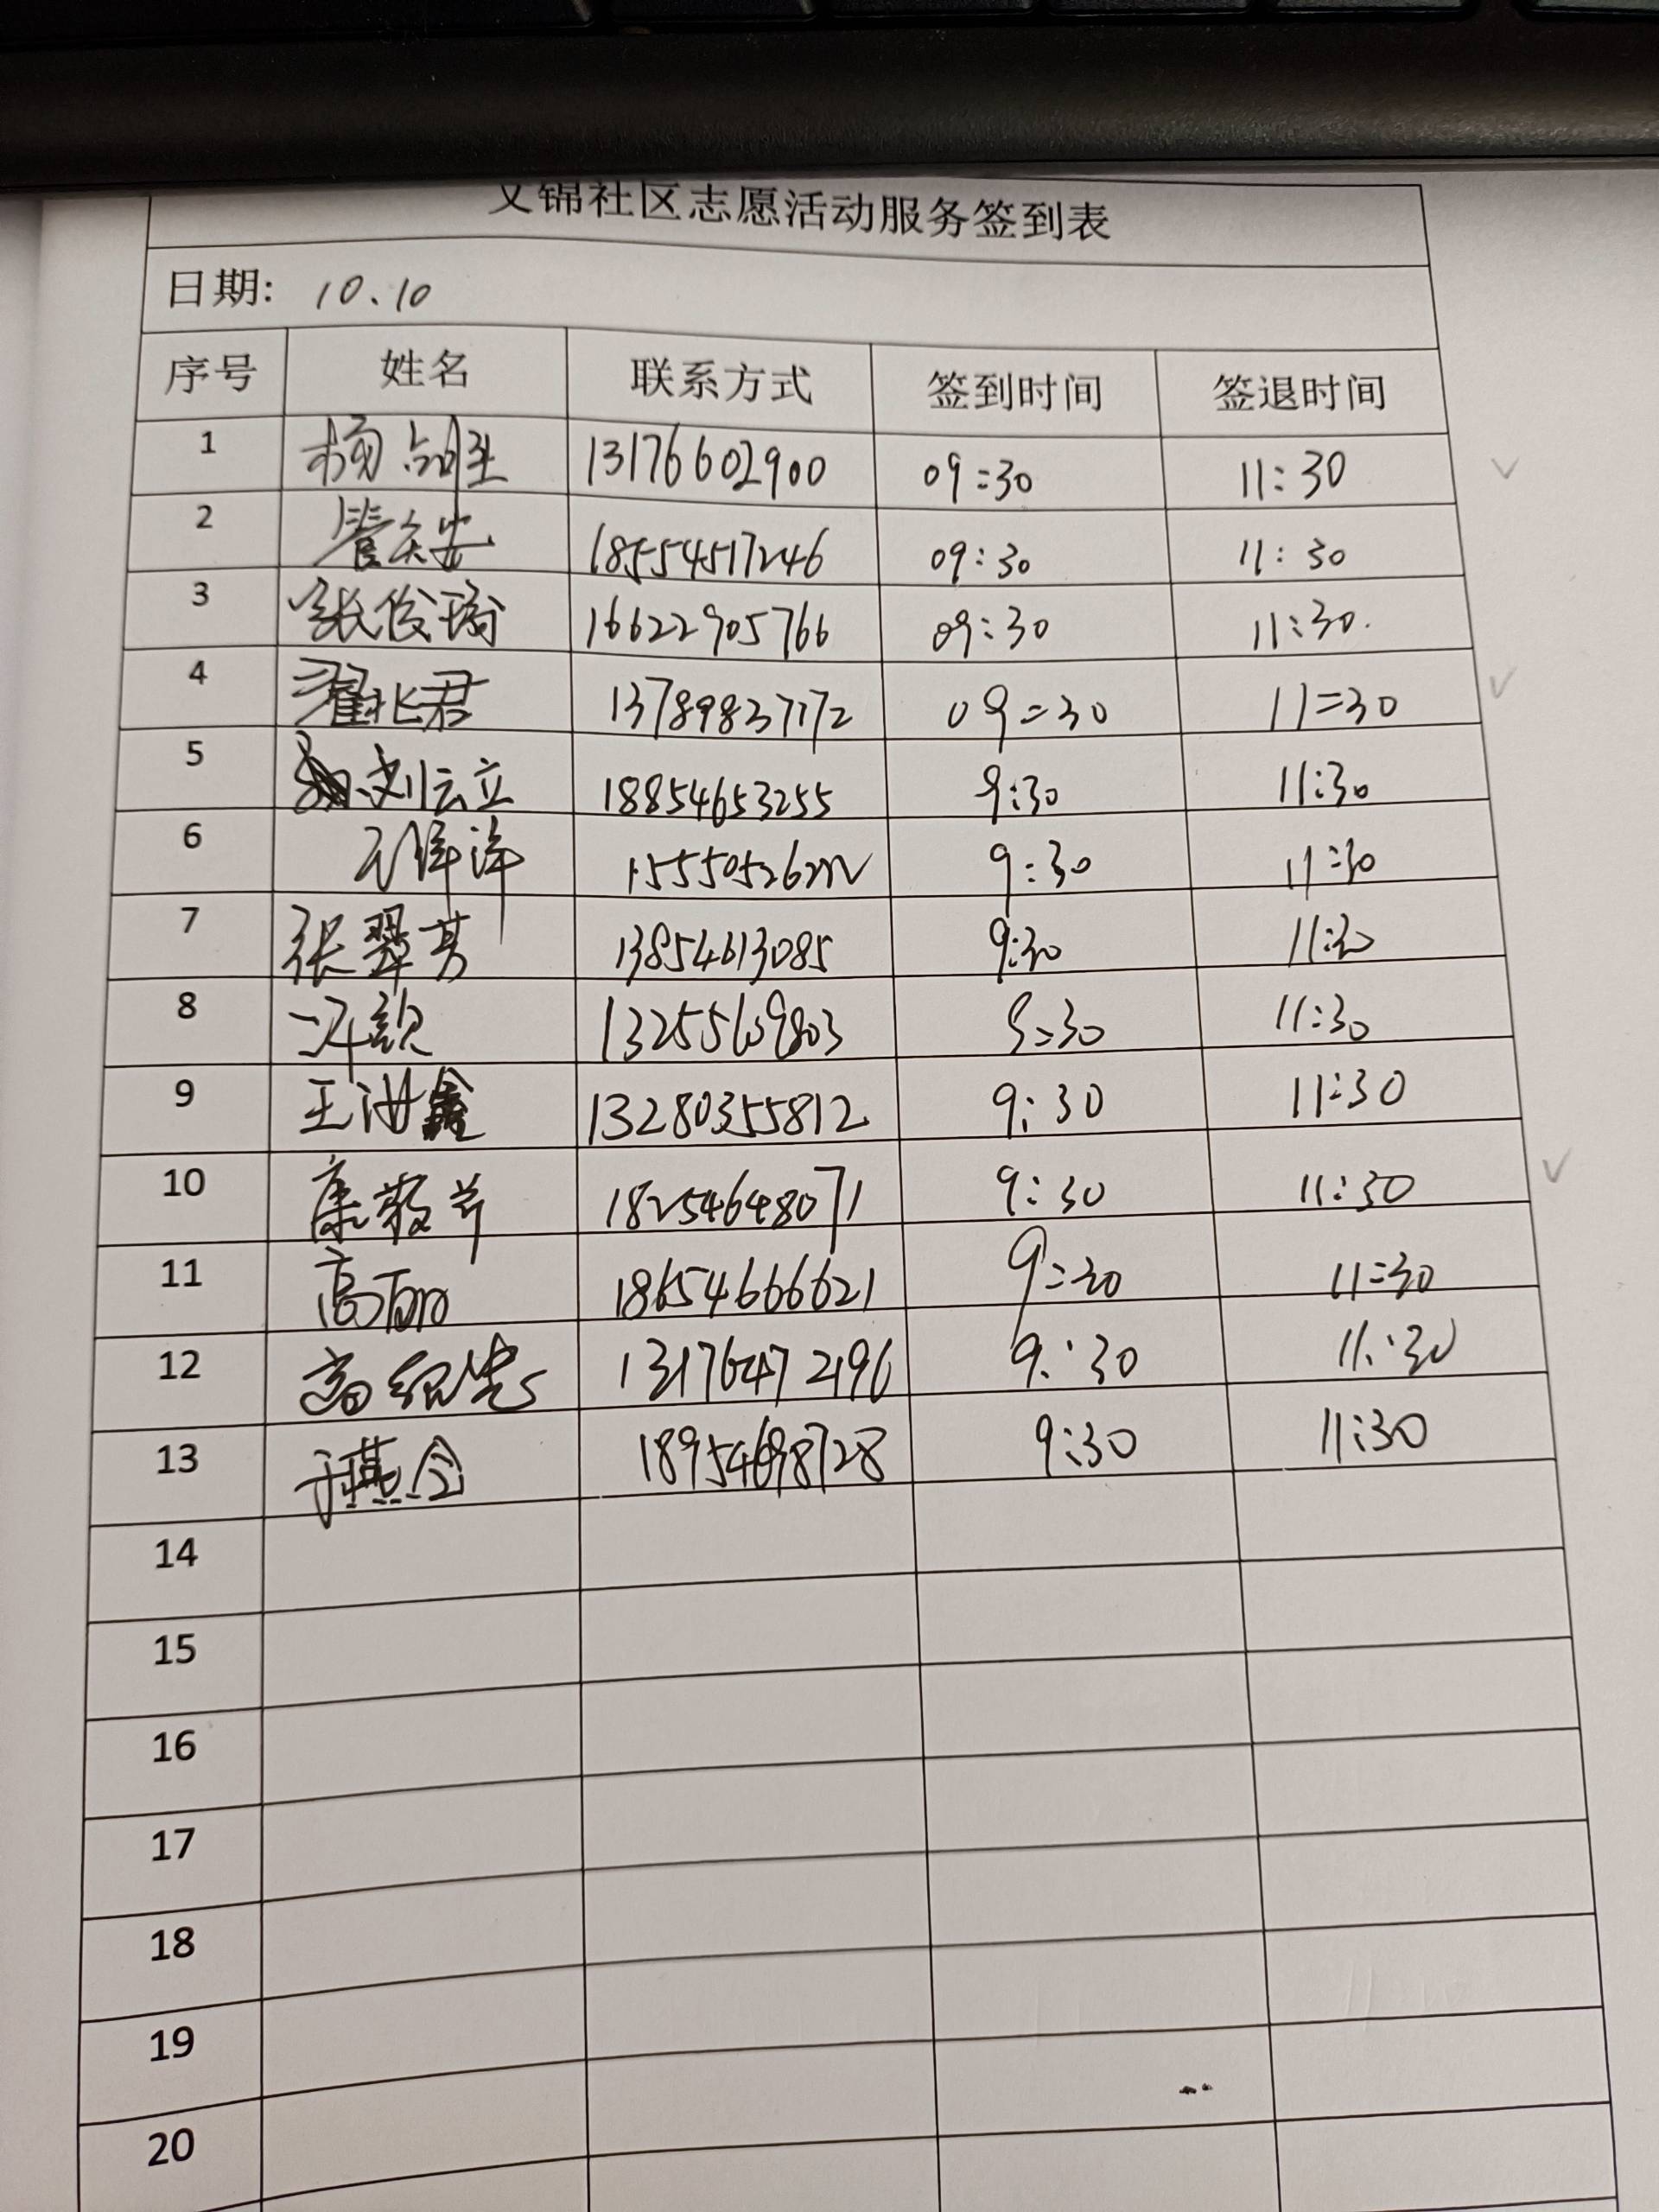 文锦社区志愿活动服务签到表
日期: 10.10
序号 姓名 联系方式 签到时间 签退时间
1 13176602900 09:30 11:30
2 18554517246 09:30 11:30
3 张俊琦 16622905766 09:30 11:30.
4 翟北君 13789837172 09:30 11:30
5 刘云立 18854653255 9:30 11:30
6 9:30 11:30
7 张翠芳 13854613085 9:30 11:30
8 9:30 11:30
9 王洪鑫 13280355812 9:30 11:30
10 18254648071 9:30 11:30
11 高 18654666621 9:30 11:30
12 高 13176472196 9:30 11:30
13 于燕 18954698728 9:30 11:30
14
15
16
17
18
19
20